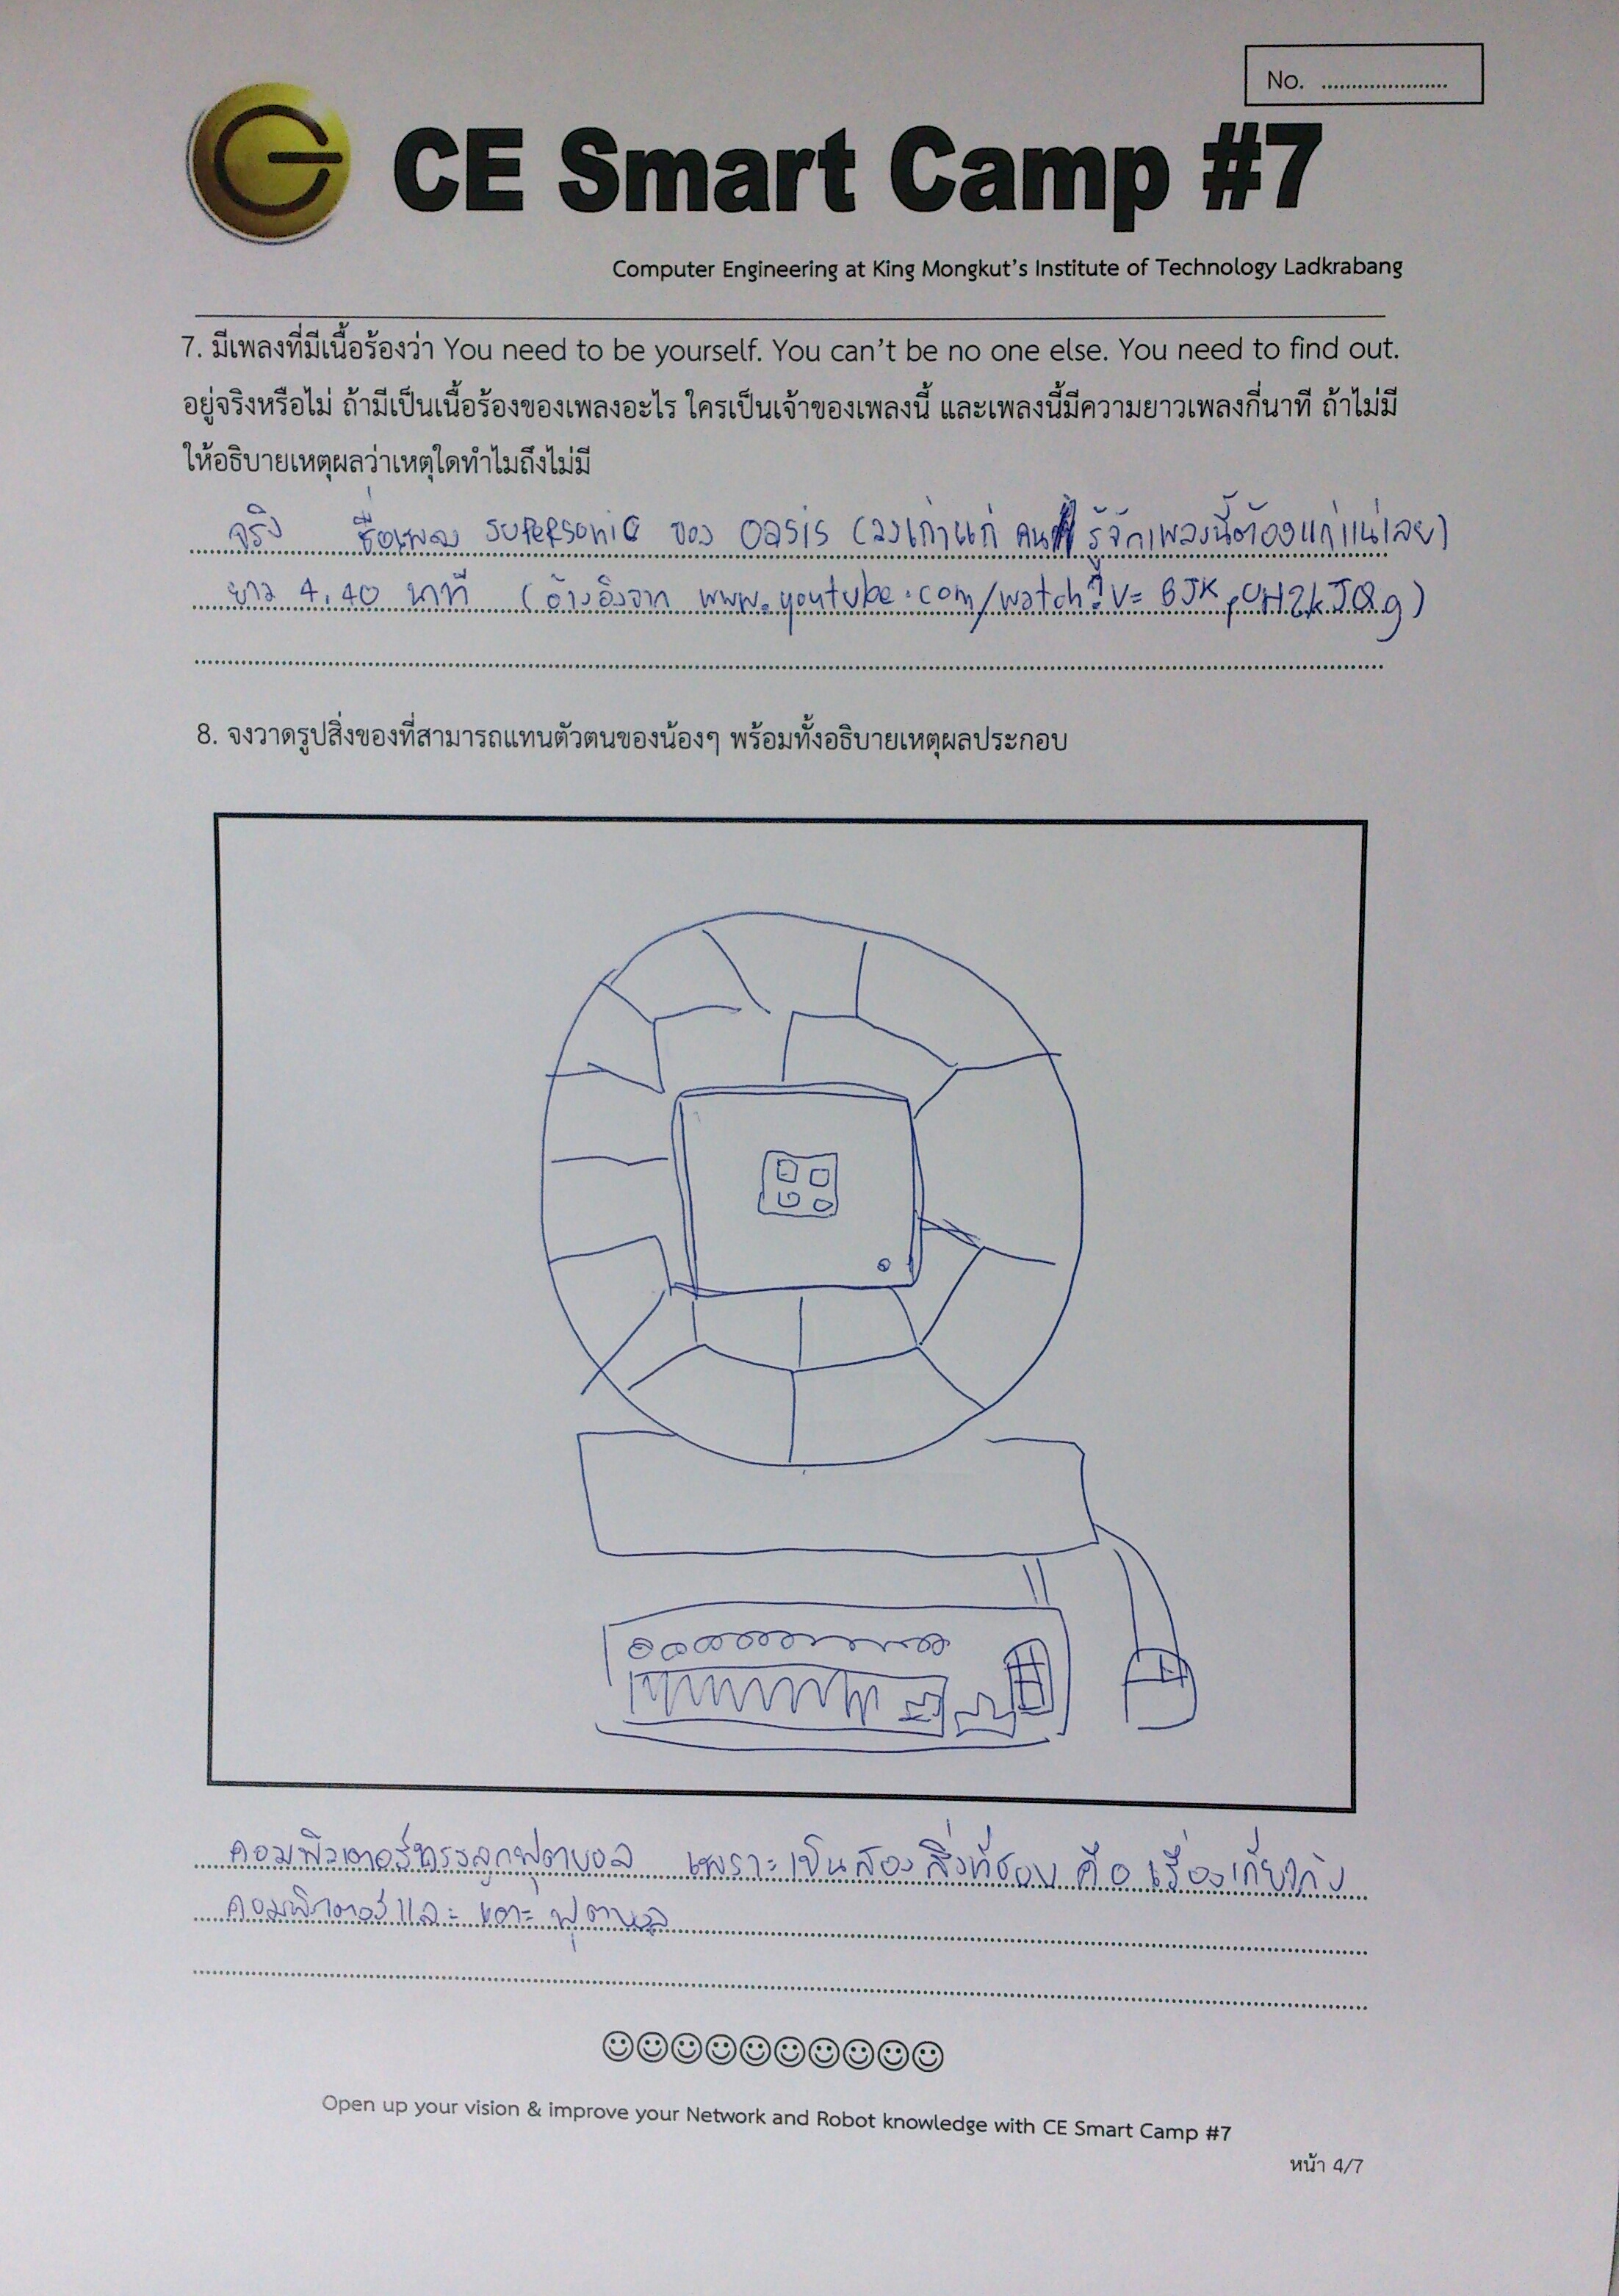 No. ......................
CE Smart Camp #7
Computer Engineering at King Mongkut's Institute of Technology Ladkrabang
7. มีเพลงที่มีเนื้อร้องว่า You need to be yourself. You can't be no one else. You need to find out.
อยู่จริงหรือไม่ ถ้ามีเป็นเนื้อร้องของเพลงอะไร ใครเป็นเจ้าของเพลงนี้ และเพลงนี้มีความยาวเพลงกี่นาที ถ้าไม่มี
ให้อธิบายเหตุผลว่าเหตุใดทำไมถึงไม่มี
จริง ชื่อเพลง supersonic ของ Oasis (วงเก่าแก่ คน รู้จักเพลงนี้ต้องแก่แน่เลย)
ยาว 4.40 นาที (อ้างอิงจาก www.youtube.com/watch?v=BJKpUH2kJQg)
8. จงวาดรูปสิ่งของที่สามารถแทนตัวตนของน้องๆ พร้อมทั้งอธิบายเหตุผลประกอบ
คอมพิวเตอร์ทรงลูกฟุตบอล เพราะเป็นสองสิ่งที่ชอบ คือ เรื่องเกี่ยวกับ
คอมพิวเตอร์และ เตะ ฟุตบอล
Open up your vision & improve your Network and Robot knowledge with CE Smart Camp #7
หน้า 4/7